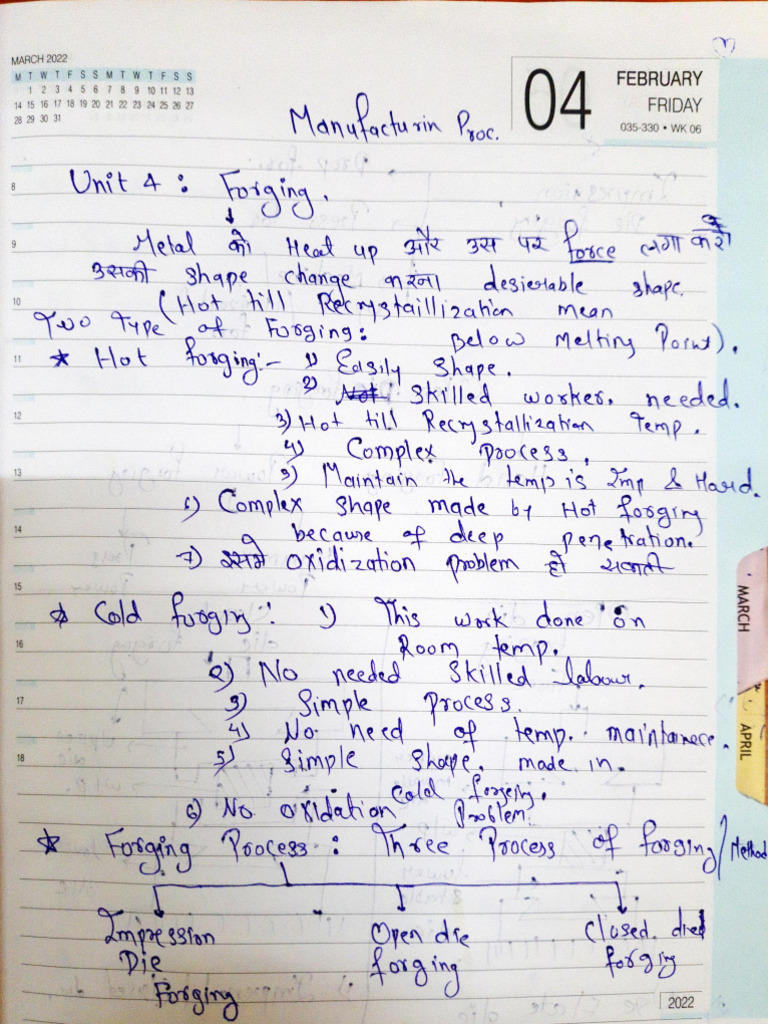 MARCH 2022
M T W T F S S M T W T F S S
1 2 3 4 5 6 7 8 9 10 11 12 13
14 15 16 17 18 19 20 21 22 23 24 25 26 27
28 29 30 31
04
FEBRUARY
FRIDAY
035-330 • WK 06
Manufacturin Proc.
8
Unit 4 : Forging.
9
Metal को Heat up और उस पर force लगा कर
उसकी shape change करना desierable shape
10
(Hot till Recrystaillization mean
Two Type of Forging: Below Melting Point).
11
* Hot forging:- 1) Easily shape.
2) Not Skilled worker. needed.
12
3) Hot till Recrystallization Temp.
4) Complex process.
13
5) Maintain the temp is Imp & Hard.
6) Complex shape made by Hot forging
14
because of deep penetration.
7) इसमे oxidization problem हो सकती
15
* Cold forging: 1) This work done on
16
Room temp.
2) No needed skilled labour.
17
3) Simple process.
4) No need of temp. maintanece.
18
5) Simple shape. made in.
cold forgeing.
6) No oxidation Problem.
* Forging Process : Three Process of forging/Method
Impression Die Forging
Open die forging
Closed. died forging
MARCH
APRIL
2022